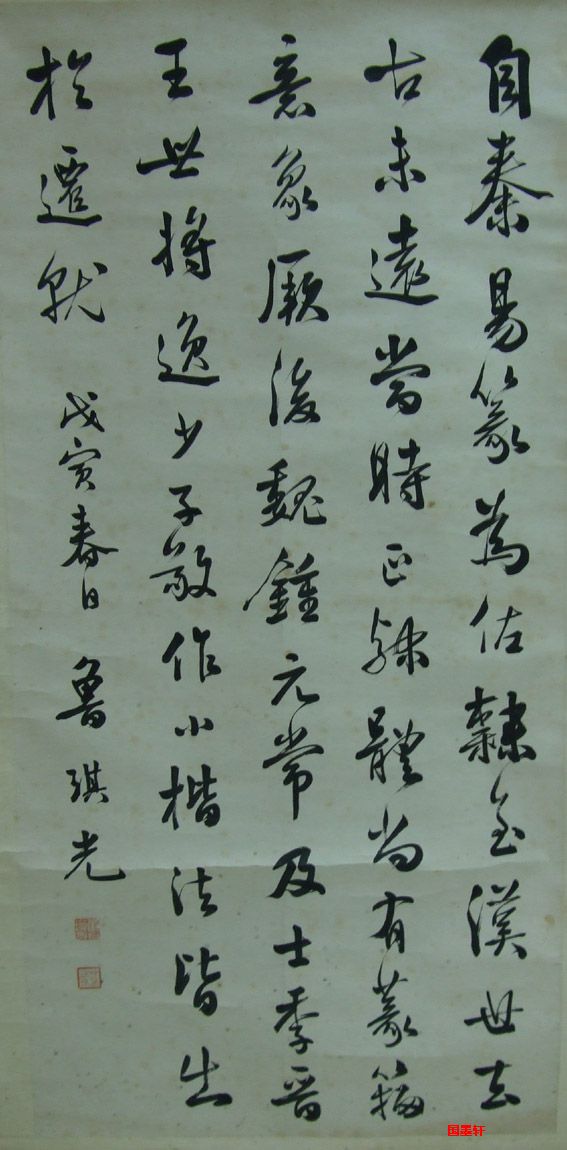 自秦易篆為佐隸至漢世去
古未遠當時正隸體尚有篆籀
意象厥後魏鍾元常及士季晉
王世將逸少子敬作小楷法皆出
於遷就
戊寅春日
魯琪光
国墨轩